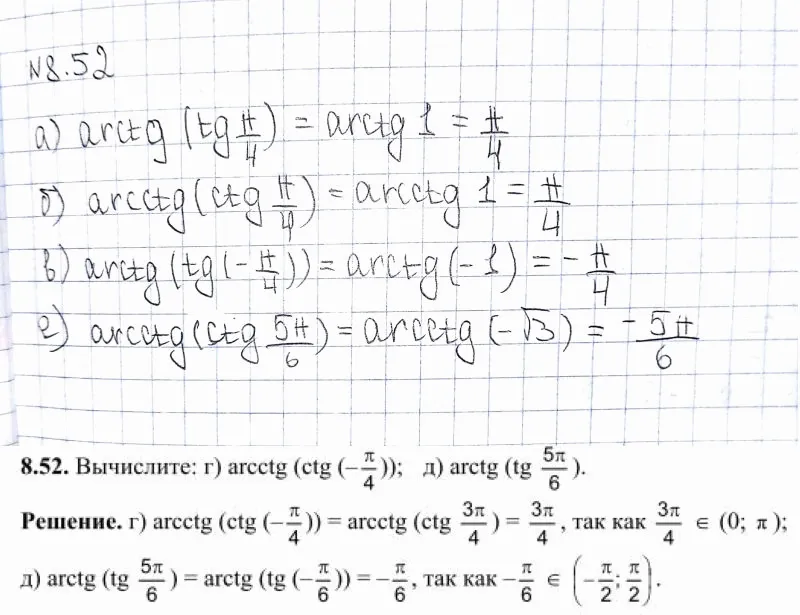 №8.52
а) arctg (tg π/4) = arctg 1 = π/4
б) arcctg (ctg π/4) = arcctg 1 = π/4
в) arctg (tg (-π/4)) = arctg (-1) = -π/4
г) arcctg (ctg 5π/6) = arcctg (-√3) = -5π/6
8.52. Вычислите: г) arcctg (ctg (−π/4)); д) arctg (tg 5π/6).
Решение. г) arcctg (ctg (−π/4)) = arcctg (ctg 3π/4) = 3π/4, так как 3π/4 ∈ (0; π);
д) arctg (tg 5π/6) = arctg (tg (−π/6)) = −π/6, так как −π/6 ∈ (−π/2; π/2).